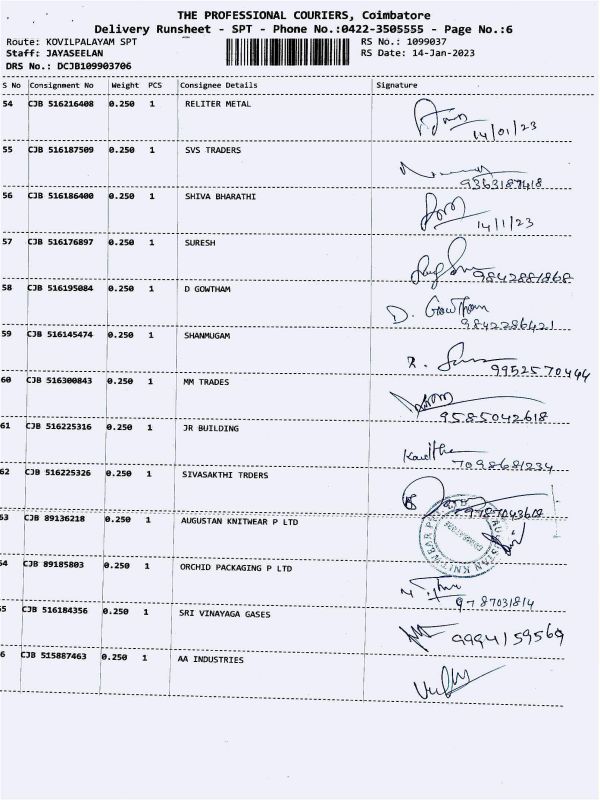 THE PROFESSIONAL COURIERS, Coimbatore
Delivery Runsheet - SPT - Phone No.:0422-3505555 - Page No.:6
Route: KOVILPALAYAM SPT RS No.: 1099037
Staff: JAYASEELAN RS Date: 14-Jan-2023
DRS No.: DCJB109903706
S No Consignment No Weight PCS Consignee Details Signature
54 CJB 516216408 0.250 1 RELITER METAL
14/01/23
55 CJB 516187509 0.250 1 SVS TRADERS
9363187418
56 CJB 516186400 0.250 1 SHIVA BHARATHI
14/1/23
57 CJB 516176897 0.250 1 SURESH
9842881868
58 CJB 516195084 0.250 1 D GOWTHAM D. Gowtham
9842286421
59 CJB 516145474 0.250 1 SHANMUGAM
9952570444
60 CJB 516300843 0.250 1 MM TRADES
9585042618
61 CJB 516225316 0.250 1 JR BUILDING
7098681234
62 CJB 516225326 0.250 1 SIVASAKTHI TRDERS
9787043618
53 CJB 89136218 0.250 1 AUGUSTAN KNITWEAR P LTD
54 CJB 89185803 0.250 1 ORCHID PACKAGING P LTD
9787031814
55 CJB 516184356 0.250 1 SRI VINAYAGA GASES
9994159569
6 CJB 515887463 0.250 1 AA INDUSTRIES